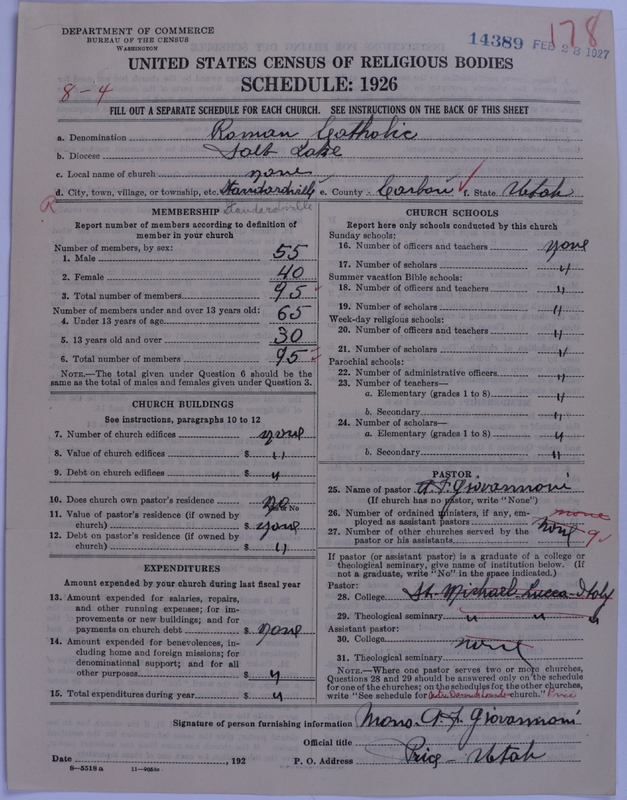 DEPARTMENT OF COMMERCE
BUREAU OF THE CENSUS
WASHINGTON
14389 FEB 28 1927
178
UNITED STATES CENSUS OF RELIGIOUS BODIES
SCHEDULE: 1926
8-4
FILL OUT A SEPARATE SCHEDULE FOR EACH CHURCH. SEE INSTRUCTIONS ON THE BACK OF THIS SHEET
a. Denomination Roman Catholic
b. Diocese Salt Lake
c. Local name of church none
d. City, town, village, or township, etc. Standardville e. County Carbon f. State Utah
R Standardville
MEMBERSHIP
Report number of members according to definition of
member in your church
Number of members, by sex:
1. Male 55
2. Female 40
3. Total number of members 95
Number of members under and over 13 years old:
4. Under 13 years of age 65
5. 13 years old and over 30
6. Total number of members 95
NOTE.—The total given under Question 6 should be the
same as the total of males and females given under Question 3.
CHURCH BUILDINGS
See instructions, paragraphs 10 to 12
7. Number of church edifices none
8. Value of church edifices $ "
9. Debt on church edifices $ "
10. Does church own pastor's residence No
Yes or No
11. Value of pastor's residence (if owned by
church) $ none
12. Debt on pastor's residence (if owned by
church) $ "
EXPENDITURES
Amount expended by your church during last fiscal year
13. Amount expended for salaries, repairs,
and other running expenses; for im-
provements or new buildings; and for
payments on church debt $ none
14. Amount expended for benevolences, in-
cluding home and foreign missions; for
denominational support; and for all
other purposes $ "
15. Total expenditures during year $ "
CHURCH SCHOOLS
Report here only schools conducted by this church
Sunday schools:
16. Number of officers and teachers none
17. Number of scholars "
Summer vacation Bible schools:
18. Number of officers and teachers "
19. Number of scholars "
Week-day religious schools:
20. Number of officers and teachers "
21. Number of scholars "
Parochial schools:
22. Number of administrative officers "
23. Number of teachers—
a. Elementary (grades 1 to 8) "
b. Secondary "
24. Number of scholars—
a. Elementary (grades 1 to 8) "
b. Secondary "
PASTOR
25. Name of pastor A. F. Giovannoni
(If church has no pastor, write "None")
26. Number of ordained ministers, if any, em-
ployed as assistant pastors none
27. Number of other churches served by the
pastor or his assistants none 9
If pastor (or assistant pastor) is a graduate of a college or
theological seminary, give name of institution below. (If
not a graduate, write "No" in the space indicated.)
Pastor:
28. College St. Michael Lucca - Italy
29. Theological seminary " " "
Assistant pastor:
30. College none
31. Theological seminary
NOTE.—Where one pastor serves two or more churches,
Questions 28 and 29 should be answered only on the schedule
for one of the churches; on the schedules for the other churches,
write "See schedule for church." Price
Signature of person furnishing information Mons. A. F. Giovannoni
Official title
Date , 192 P. O. Address Price - Utah
8—5518 a